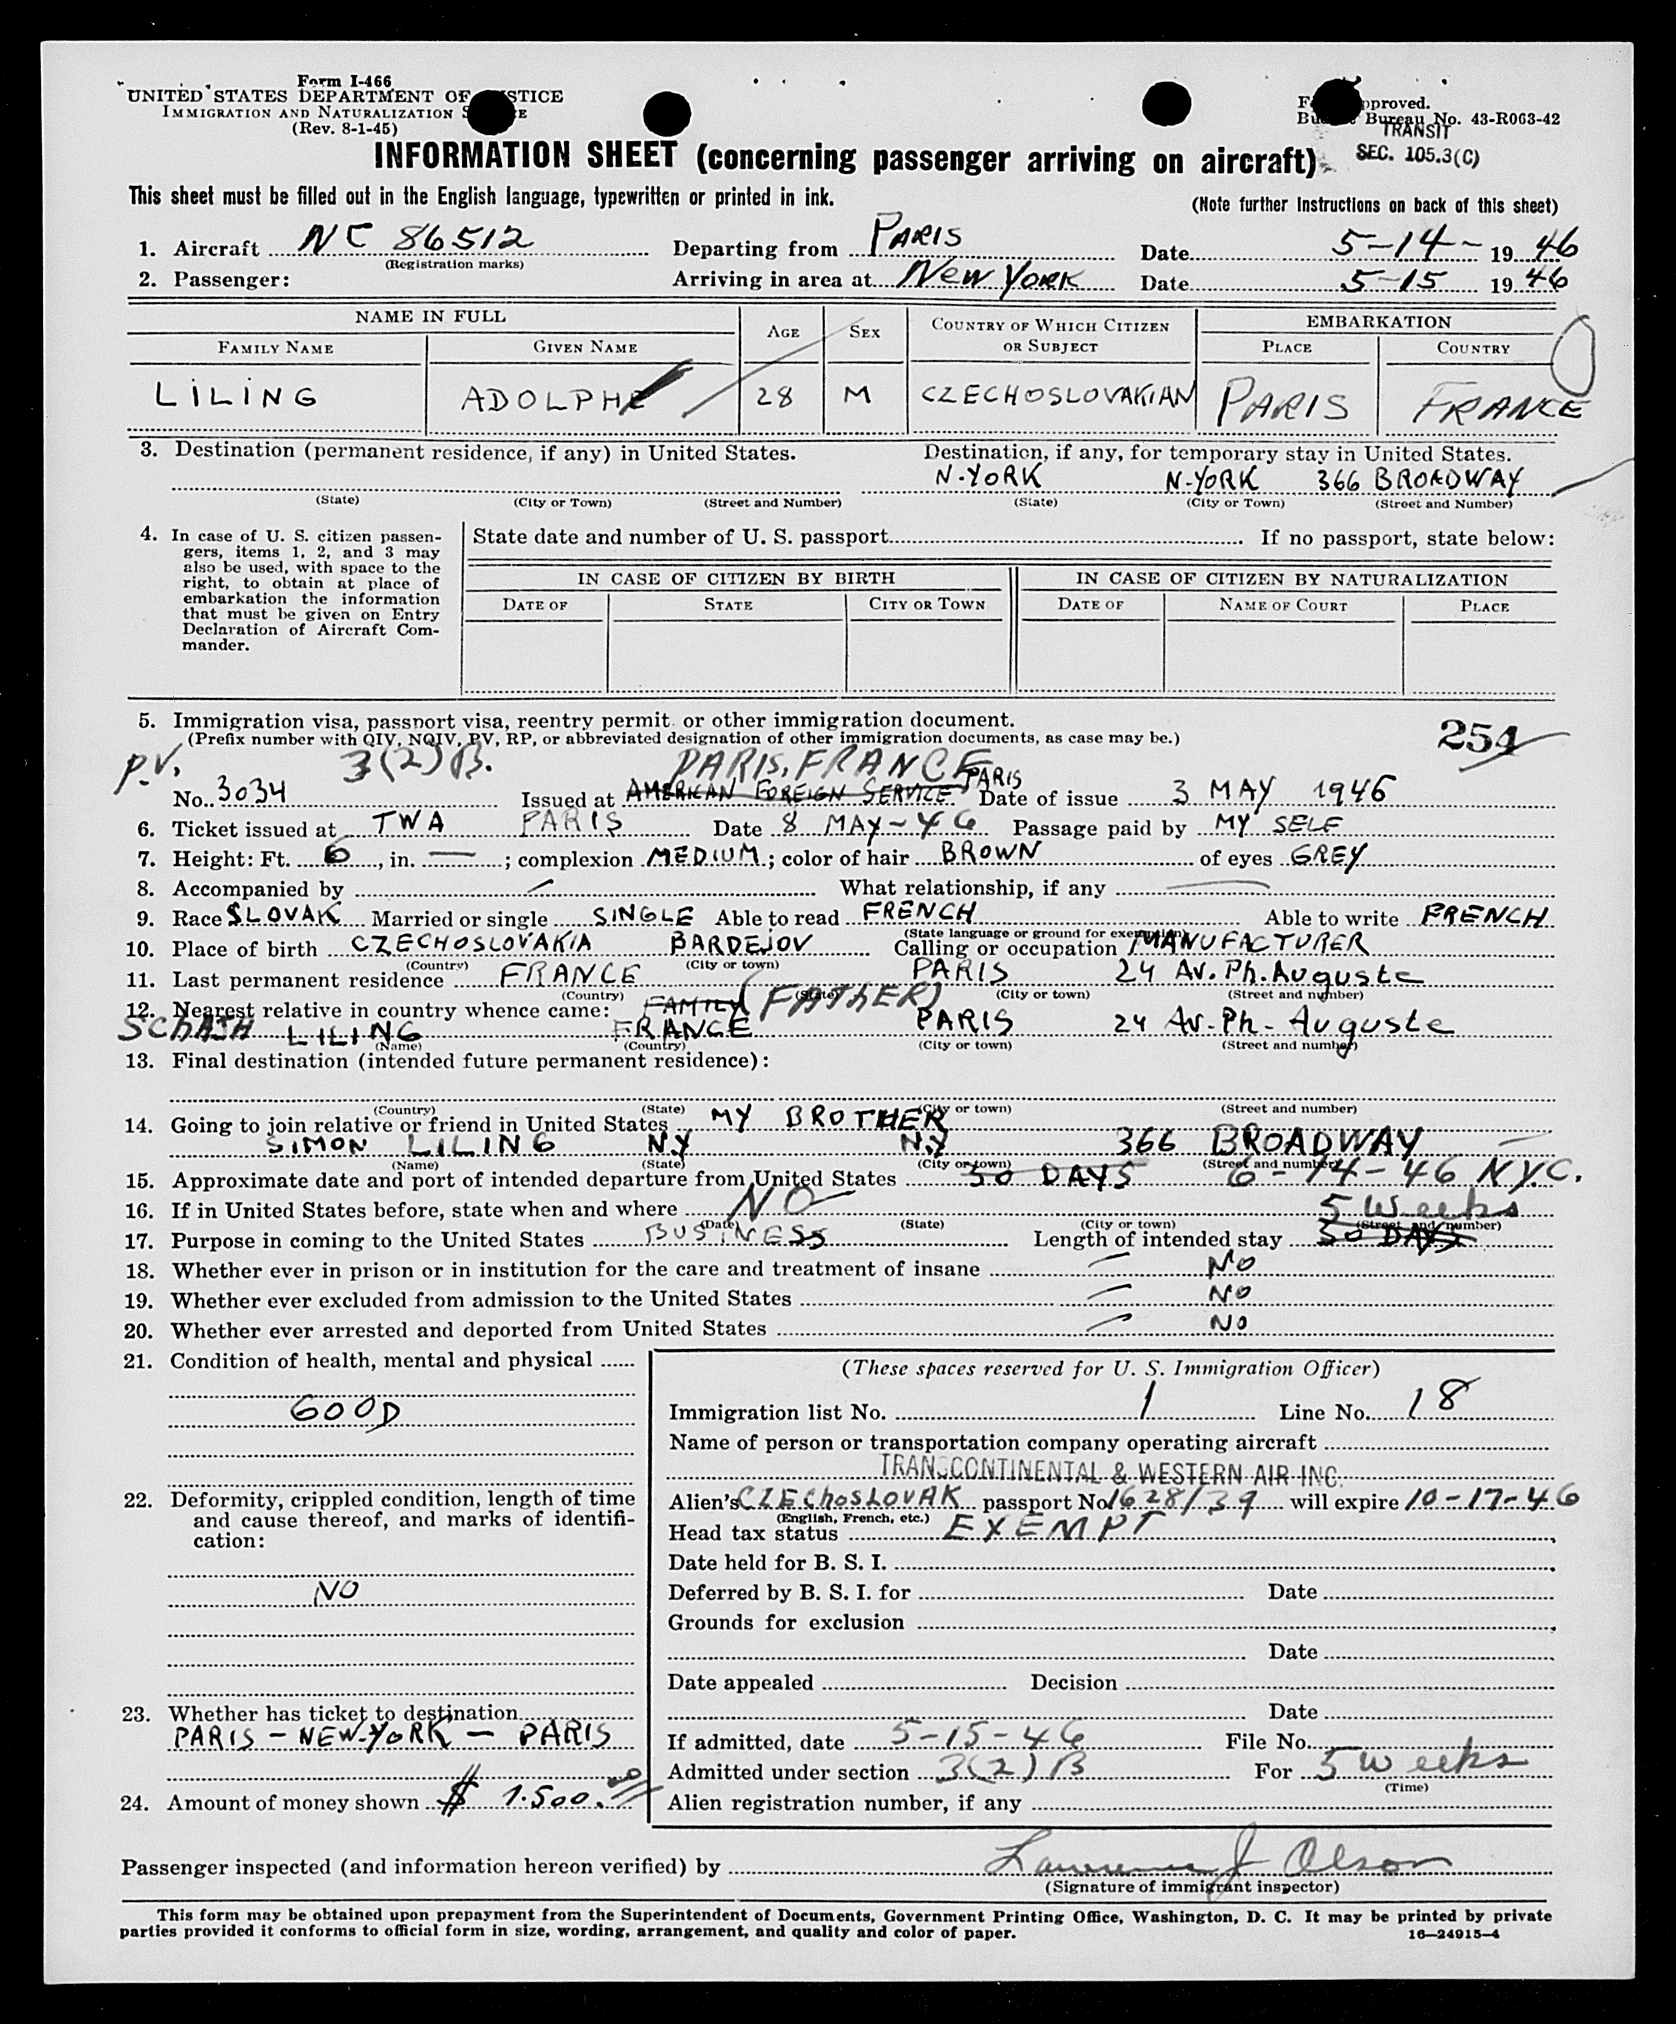 Form I-466
UNITED STATES DEPARTMENT OF JUSTICE
IMMIGRATION AND NATURALIZATION SERVICE
(Rev. 8-1-45)
Form Approved.
Budget Bureau No. 43-R063-42
TRANSIT
SEC. 105.3(C)
INFORMATION SHEET (concerning passenger arriving on aircraft)
This sheet must be filled out in the English language, typewritten or printed in ink.
(Note further instructions on back of this sheet)
1. Aircraft NC 86512 Departing from PARIS Date 5-14- 1946
(Registration marks)
2. Passenger: Arriving in area at New York Date 5-15 1946
NAME IN FULL AGE SEX COUNTRY OF WHICH CITIZEN OR SUBJECT EMBARKATION
FAMILY NAME GIVEN NAME PLACE COUNTRY
LILING ADOLPHE 28 M CZECHOSLOVAKIAN PARIS FRANCE
3. Destination (permanent residence, if any) in United States. Destination, if any, for temporary stay in United States.
N-YORK N-YORK 366 BROADWAY
(State) (City or Town) (Street and Number) (State) (City or Town) (Street and Number)
4. In case of U. S. citizen passen-
gers, items 1, 2, and 3 may
also be used, with space to the
right, to obtain at place of
embarkation the information
that must be given on Entry
Declaration of Aircraft Com-
mander.
State date and number of U. S. passport If no passport, state below:
IN CASE OF CITIZEN BY BIRTH IN CASE OF CITIZEN BY NATURALIZATION
DATE OF STATE CITY OR TOWN DATE OF NAME OF COURT PLACE
5. Immigration visa, passport visa, reentry permit or other immigration document.
(Prefix number with QIV, NQIV, PV, RP, or abbreviated designation of other immigration documents, as case may be.)
254
P.V. 3(2)B. PARIS, FRANCE
No. 3034 Issued at AMERICAN FOREIGN SERVICE PARIS Date of issue 3 MAY 1946
6. Ticket issued at TWA PARIS Date 8 MAY-46 Passage paid by MY SELF
7. Height: Ft. 6, in. —; complexion MEDIUM; color of hair BROWN of eyes GREY
8. Accompanied by What relationship, if any
9. Race SLOVAK Married or single SINGLE Able to read FRENCH Able to write FRENCH
(State language or ground for exemption)
10. Place of birth CZECHOSLOVAKIA BARDEJOV Calling or occupation MANUFACTURER
(Country) (City or town)
11. Last permanent residence FRANCE PARIS 24 Av. Ph. Auguste
(Country) (State) (City or town) (Street and number)
12. Nearest relative in country whence came: FAMILY (FATHER)
LILING FRANCE PARIS 24 Av-Ph-Auguste
(Name) (Country) (City or town) (Street and number)
13. Final destination (intended future permanent residence):
(Country) (State) (City or town) (Street and number)
14. Going to join relative or friend in United States MY BROTHER
SIMON LILING N.Y N.Y 366 BROADWAY
(Name) (State) (City or town) (Street and number)
15. Approximate date and port of intended departure from United States 30 DAYS 6-14-46 N.Y.C.
16. If in United States before, state when and where NO
(Date) (State) (City or town) (Street and number)
5 Weeks
17. Purpose in coming to the United States BUSINESS Length of intended stay 30 DAYS
18. Whether ever in prison or in institution for the care and treatment of insane NO
19. Whether ever excluded from admission to the United States NO
20. Whether ever arrested and deported from United States NO
21. Condition of health, mental and physical
GOOD
22. Deformity, crippled condition, length of time
and cause thereof, and marks of identifi-
cation:
NO
23. Whether has ticket to destination
PARIS - NEW-YORK - PARIS
24. Amount of money shown $ 1.500.00
(These spaces reserved for U. S. Immigration Officer)
Immigration list No. 1 Line No. 18
Name of person or transportation company operating aircraft
TRANSCONTINENTAL & WESTERN AIR INC.
Alien's CZECHOSLOVAK passport No. 1628/39 will expire 10-17-46
(English, French, etc.)
Head tax status EXEMPT
Date held for B. S. I.
Deferred by B. S. I. for Date
Grounds for exclusion
Date
Date appealed Decision
Date
If admitted, date 5-15-46 File No.
Admitted under section 3(2)B For 5 weeks
(Time)
Alien registration number, if any
Passenger inspected (and information hereon verified) by Lawrence J Olson
(Signature of immigrant inspector)
This form may be obtained upon prepayment from the Superintendent of Documents, Government Printing Office, Washington, D. C. It may be printed by private
parties provided it conforms to official form in size, wording, arrangement, and quality and color of paper.
16—24915-4